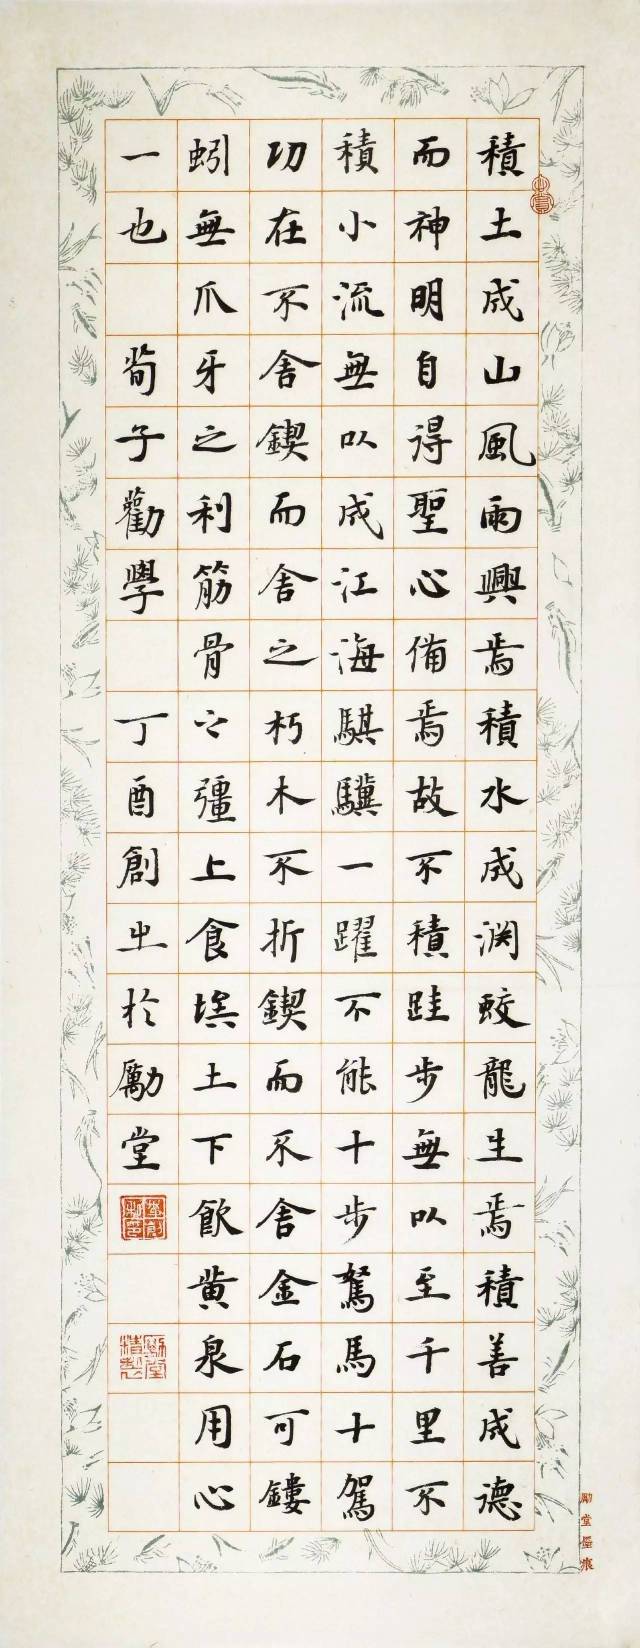 積土成山風雨興焉積水成渊蛟龍生焉積善成德
而神明自得聖心備焉故不積跬步無以至千里不
積小流無以成江海騏驥一躍不能十步駑馬十駕
功在不舍鍥而舍之朽木不折鍥而不舍金石可鏤
蚓無爪牙之利筋骨之彊上食埃土下飲黄泉用心
一也 荀子勸學 丁酉創㞢於勵堂
勵堂墨痕